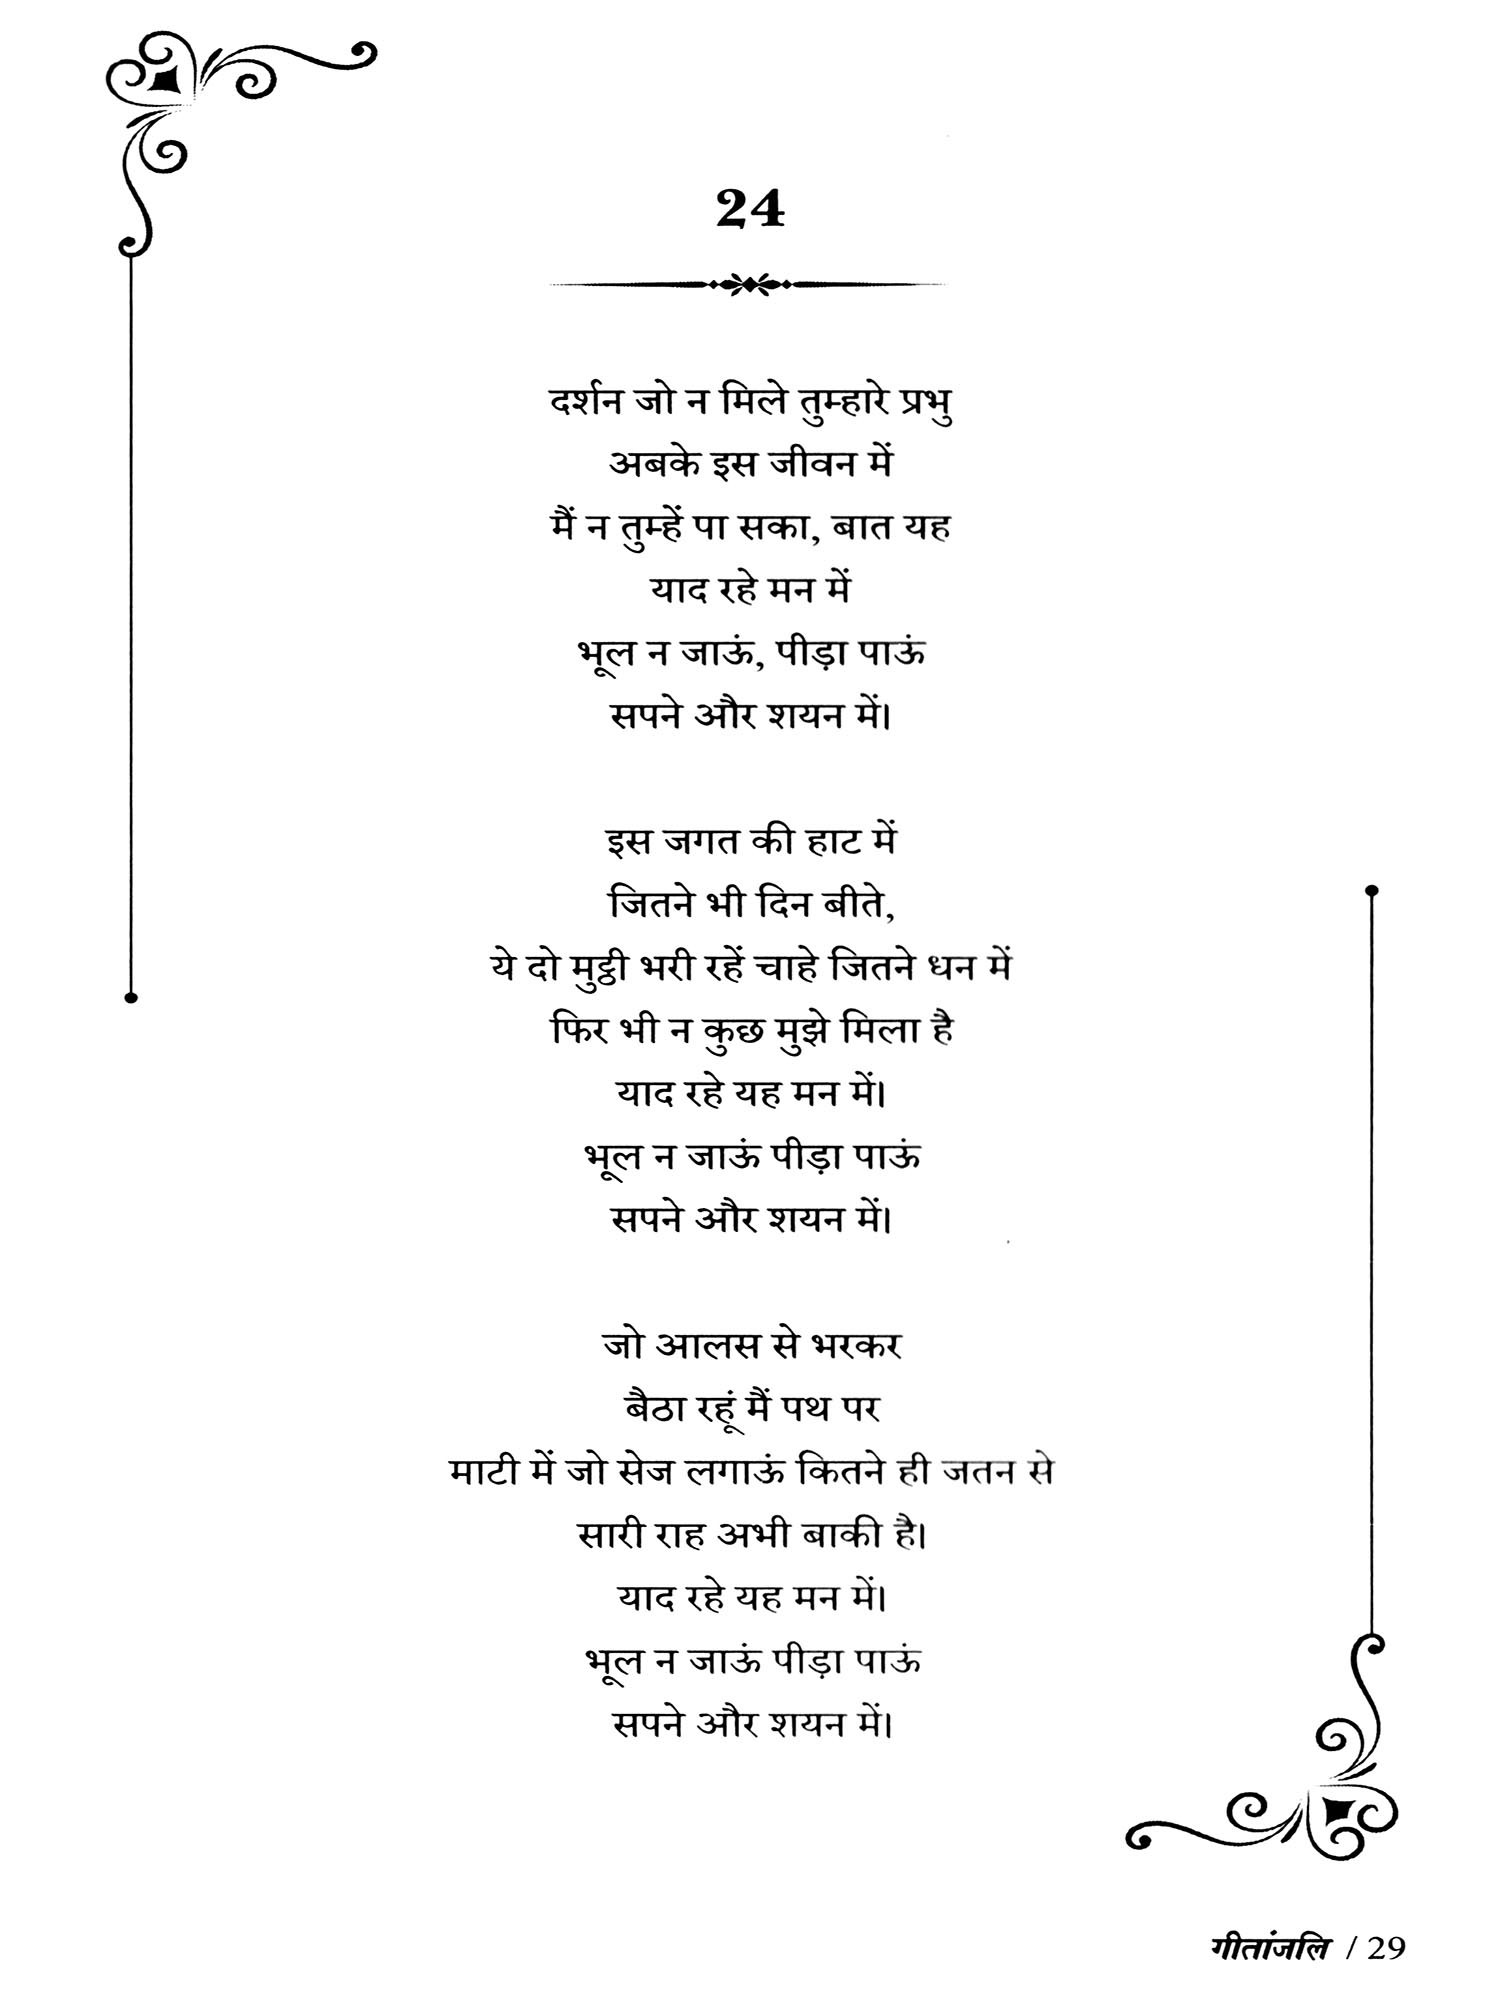 24
दर्शन जो न मिले तुम्हारे प्रभु
अबके इस जीवन में
मैं न तुम्हें पा सका, बात यह
याद रहे मन में
भूल न जाऊं, पीड़ा पाऊं
सपने और शयन में।
इस जगत की हाट में
जितने भी दिन बीते,
ये दो मुट्ठी भरी रहें चाहे जितने धन में
फिर भी न कुछ मुझे मिला है
याद रहे यह मन में।
भूल न जाऊं पीड़ा पाऊं
सपने और शयन में।
जो आलस से भरकर
बैठा रहूं मैं पथ पर
माटी में जो सेज लगाऊं कितने ही जतन से
सारी राह अभी बाकी है।
याद रहे यह मन में।
भूल न जाऊं पीड़ा पाऊं
सपने और शयन में।
गीतांजलि / 29